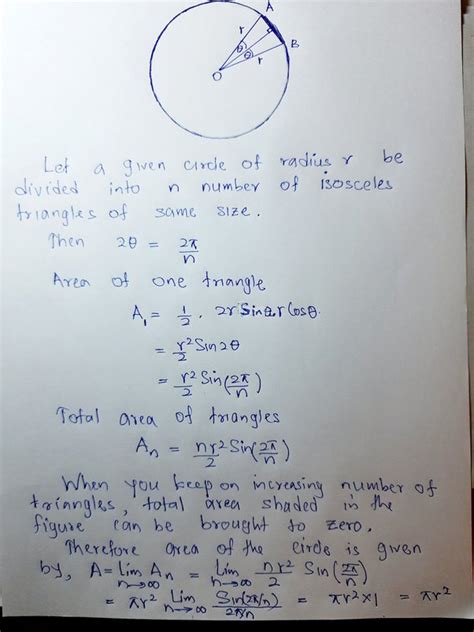 A
r
θ
θ
B
r
O
Let a given circle of radius r be
divided into n number of isosceles
triangles of same size.
Then 2θ = 2π/n
Area of one triangle
A₁ = 1/2 . 2r Sinθ.r Cosθ.
= r²/2 Sin2θ
= r²/2 Sin(2π/n)
Total area of triangles
Aₙ = nr²/2 Sin(2π/n)
When you keep on increasing number of
triangles, total area shaded in the
figure can be brought to zero.
Therefore area of the circle is given
by, A = lim n→∞ Aₙ = lim n→∞ nr²/2 Sin(2π/n)
= πr² lim n→∞ Sin(2π/n)/2π/n = πr²×1 = πr²